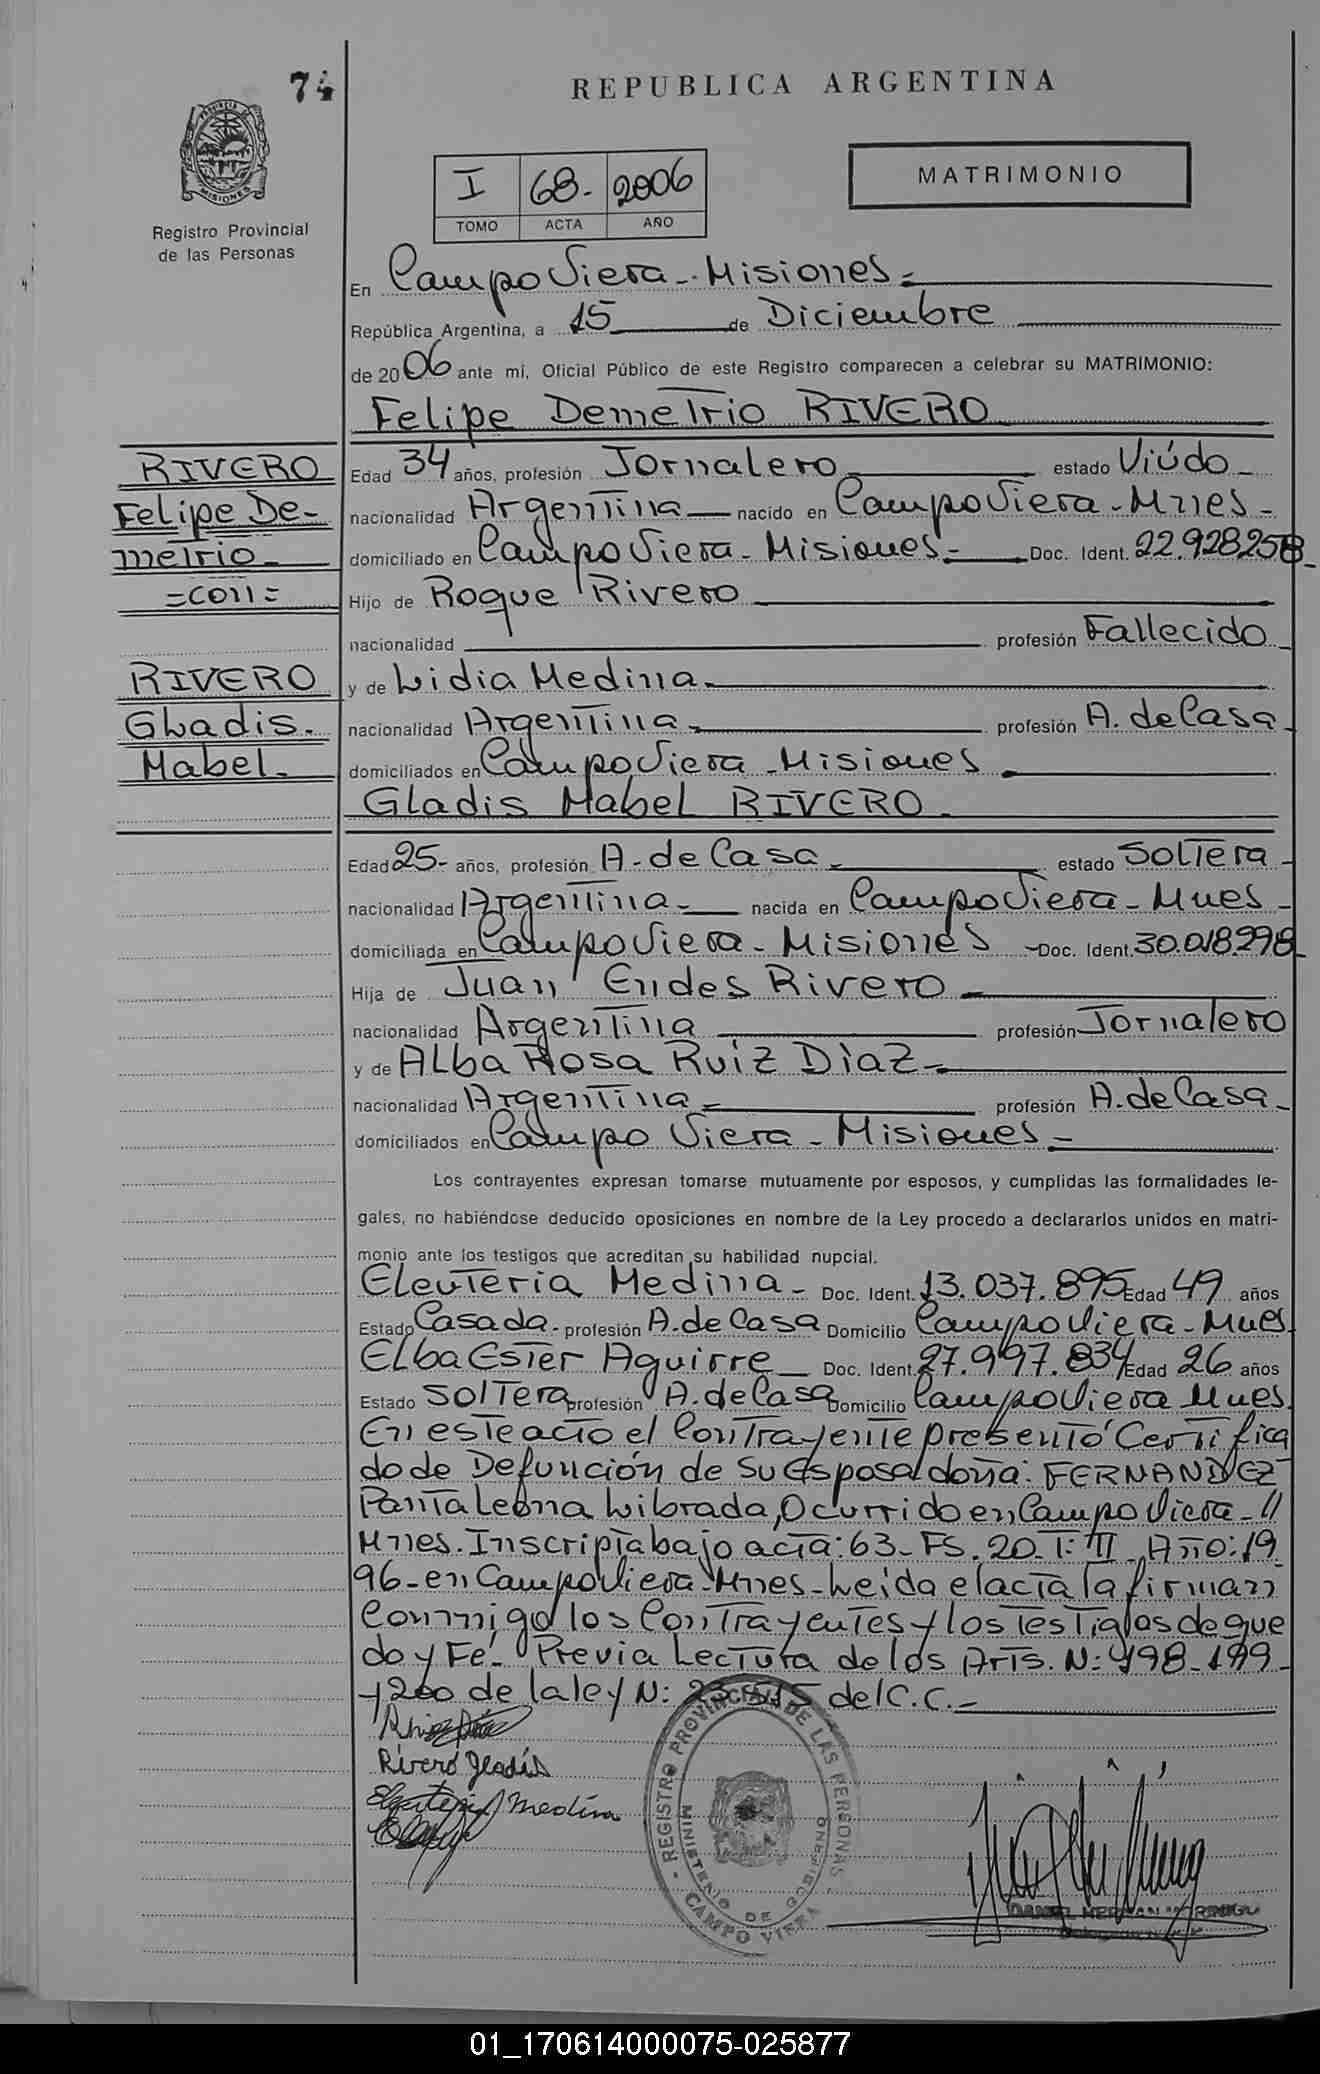 74
REPUBLICA ARGENTINA
PROVINCIA DE MISIONES
Registro Provincial
de las Personas
I 68- 2006
TOMO ACTA AÑO
MATRIMONIO
En Campo Viera - Misiones
República Argentina, a 15 de Diciembre
de 2006 ante mí, Oficial Público de este Registro comparecen a celebrar su MATRIMONIO:
Felipe Demetrio RIVERO
RIVERO
Felipe De-
metrio
=con=
RIVERO
Gladis
Mabel
Edad 34 años, profesión Jornalero estado Viúdo
nacionalidad Argentina nacido en Campo Viera - Mnes
domiciliado en Campo Viera - Misiones Doc. Ident. 22.928.258
Hijo de Roque Rivero
nacionalidad profesión Fallecido
y de Lidia Medina
nacionalidad Argentina profesión A. de Casa
domiciliados en Campo Viera - Misiones
Gladis Mabel RIVERO
Edad 25- años, profesión A. de Casa estado Soltera
nacionalidad Argentina nacida en Campo Viera - Mnes
domiciliada en Campo Viera - Misiones Doc. Ident. 30.018.298
Hija de Juan Eudes Rivero
nacionalidad Argentina profesión Jornalero
y de Alba Rosa Ruiz Diaz
nacionalidad Argentina profesión A. de Casa
domiciliados en Campo Viera - Misiones
Los contrayentes expresan tomarse mutuamente por esposos, y cumplidas las formalidades le-
gales, no habiéndose deducido oposiciones en nombre de la Ley procedo a declararlos unidos en matri-
monio ante los testigos que acreditan su habilidad nupcial.
Eleuteria Medina - Doc. Ident. 13.037.895 Edad 49 años
Estado Casada - profesión A. de Casa Domicilio Campo Viera - Mnes
Elba Ester Aguirre Doc. Ident. 27.997.834 Edad 26 años
Estado Soltera profesión A. de Casa Domicilio Campo Viera Mnes
En este acto el Contrayente presentó Certifica
do de Defunción de su Esposa doña: FERNANDEZ
Pantaleona Librada, Ocurrido en Campo Viera - //
Mnes. Inscripta bajo acta: 63 - FS. 20 - T: II - Año: 19
96 - en Campo Viera - Mnes - Leida el acta la firman
Conmigo los Contrayentes y los Testigos de que
doy Fé - Previa Lectura de los Arts. N: 198 - 199 -
y 200 de la ley N: 23.515 del C.C. -
Rivero Gladis
Eleuteria Medina
REGISTRO PROVINCIAL DE LAS PERSONAS
MINISTERIO DE GOBIERNO
CAMPO VIERA
DANIEL HERNAN MORINIGO
01_170614000075-025877